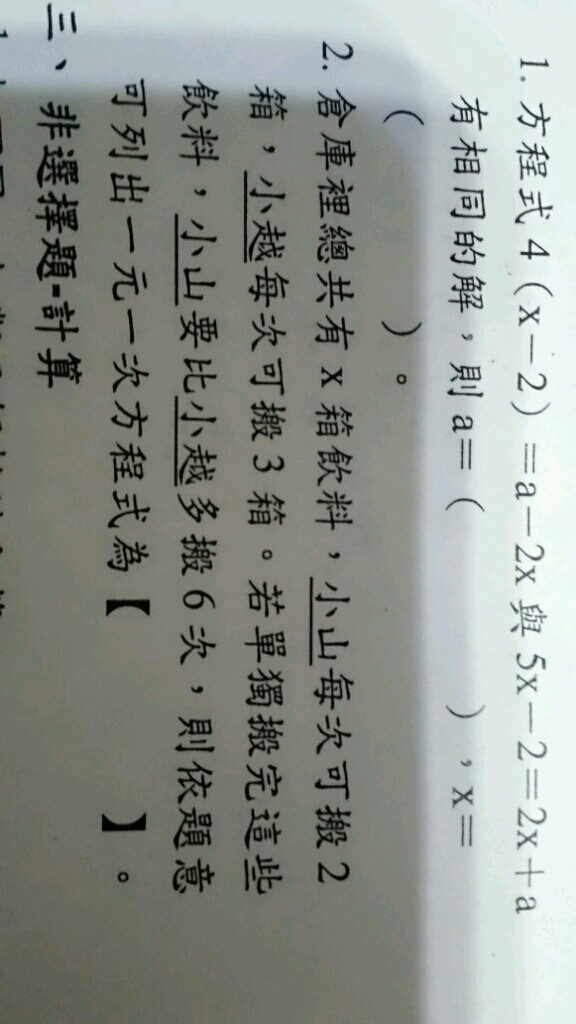 1. 方程式 4（x－2）＝a－2x 與 5x－2＝2x＋a
有相同的解，則 a＝（　　　），x＝
（　　　）。
2. 倉庫裡總共有 x 箱飲料，小山每次可搬 2
箱，小越每次可搬 3 箱。若單獨搬完這些
飲料，小山要比小越多搬 6 次，則依題意
可列出一元一次方程式為【　　　】。
三、非選擇題-計算